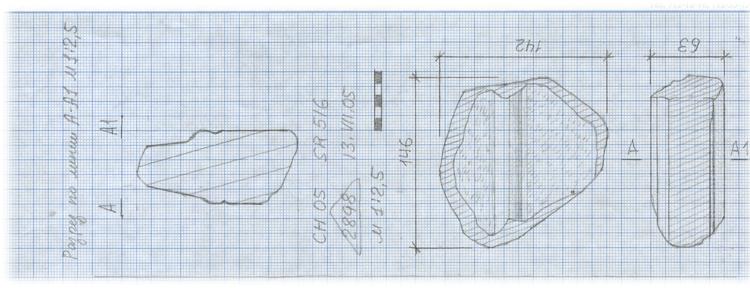 Разрез по линии А-А1 М 1:2,5
А
А1
СН 05 SR 516
2898 13.VII.05
М 1:2,5
142
146
63
А
А1